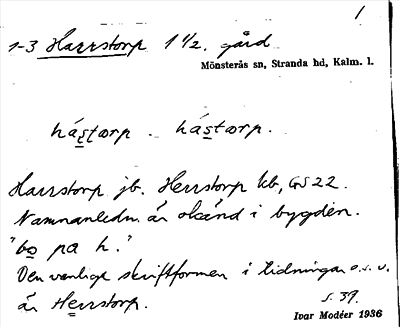 1
1-3 Harrstorp 1 1/2. gård
Mönsterås sn, Stranda hd, Kalm. l.
hástærp . hástærp .
Harrstorp jb. Herrstorp kb, GS 22.
Namnanledn. är okänd i bygden.
"bo på h."
Den vanliga skriftformen i tidningar o.s.v.
är Herrstorp.
s. 39.
Ivar Modéer 1936